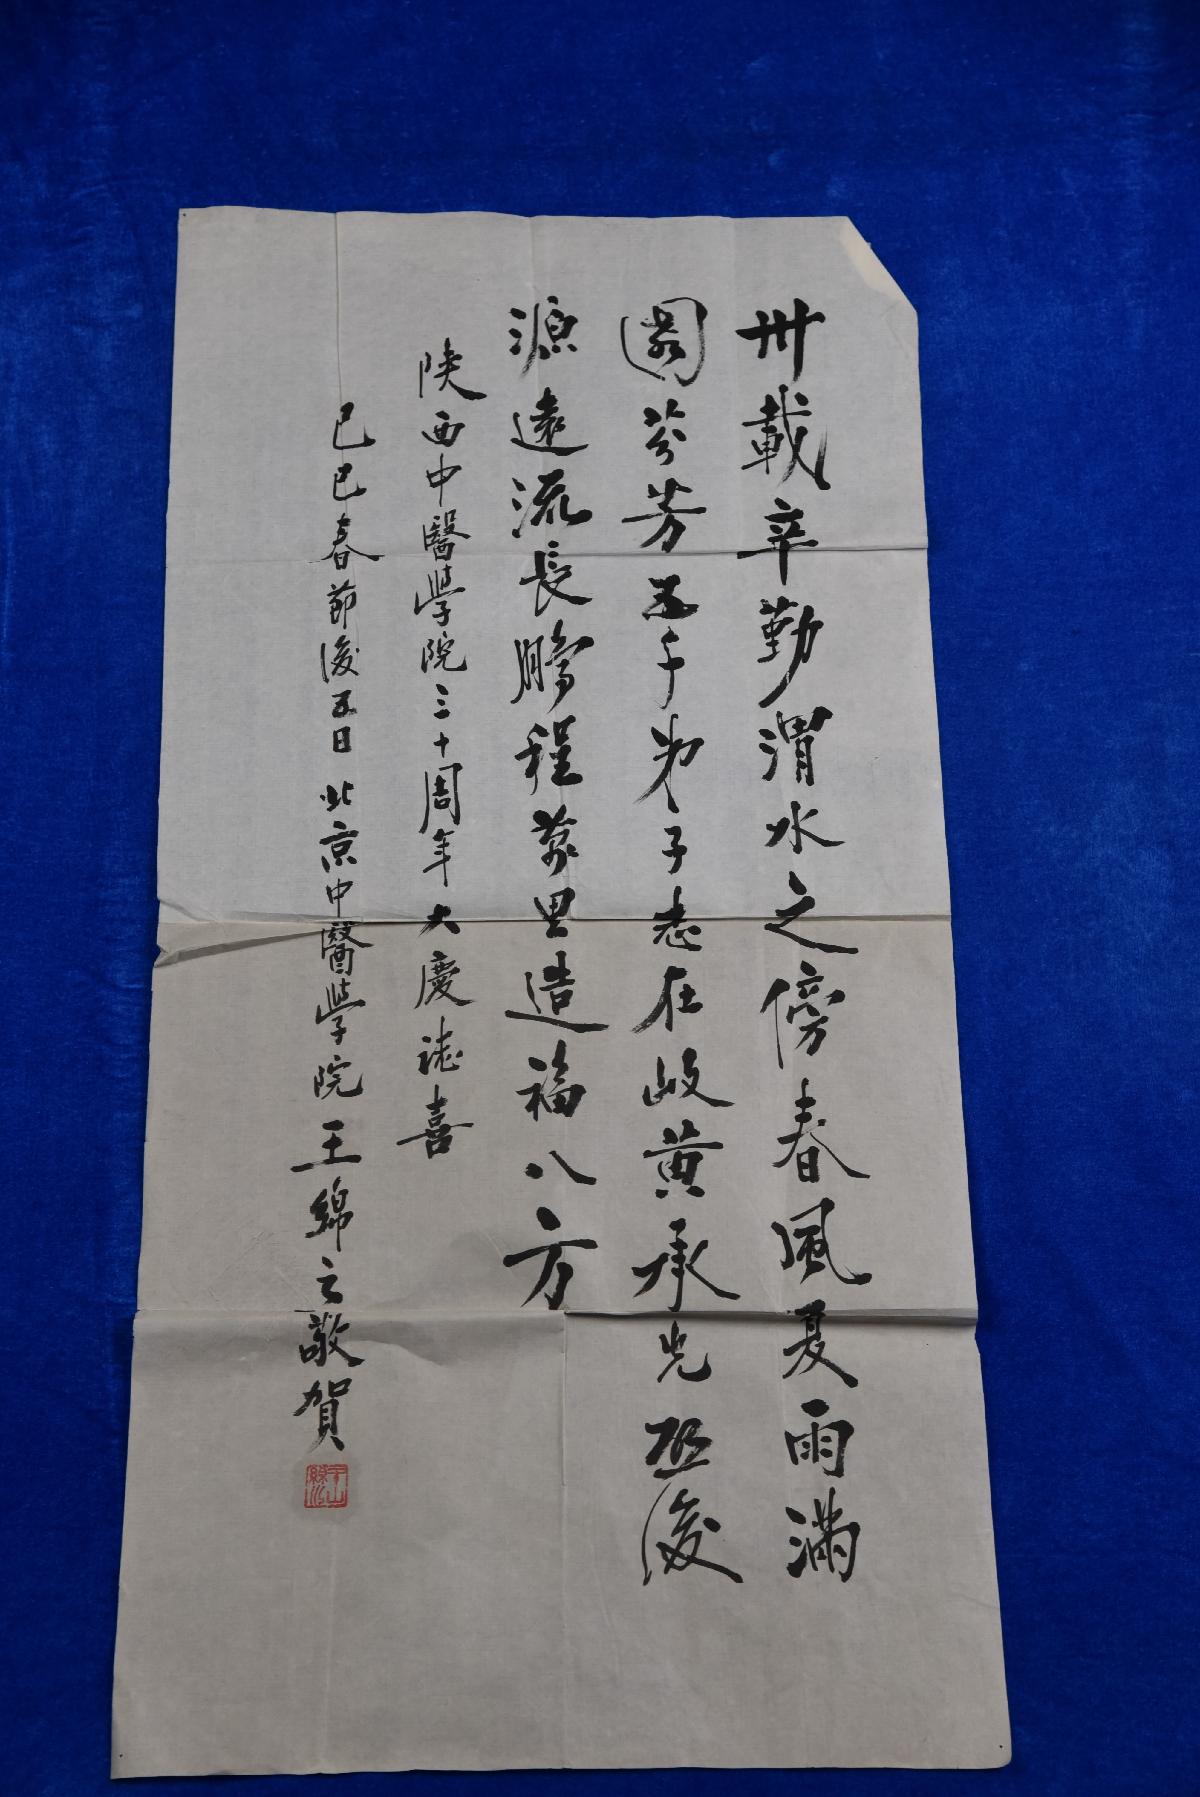 卅載辛勤渭水之傍春風夏雨滿
園芬芳五千弟子志在岐黄承先啟後
源遠流長鵬程萬里造福八方
陕西中醫學院三十周年大慶誌喜
己巳春節後五日北京中醫學院王綿之敬賀